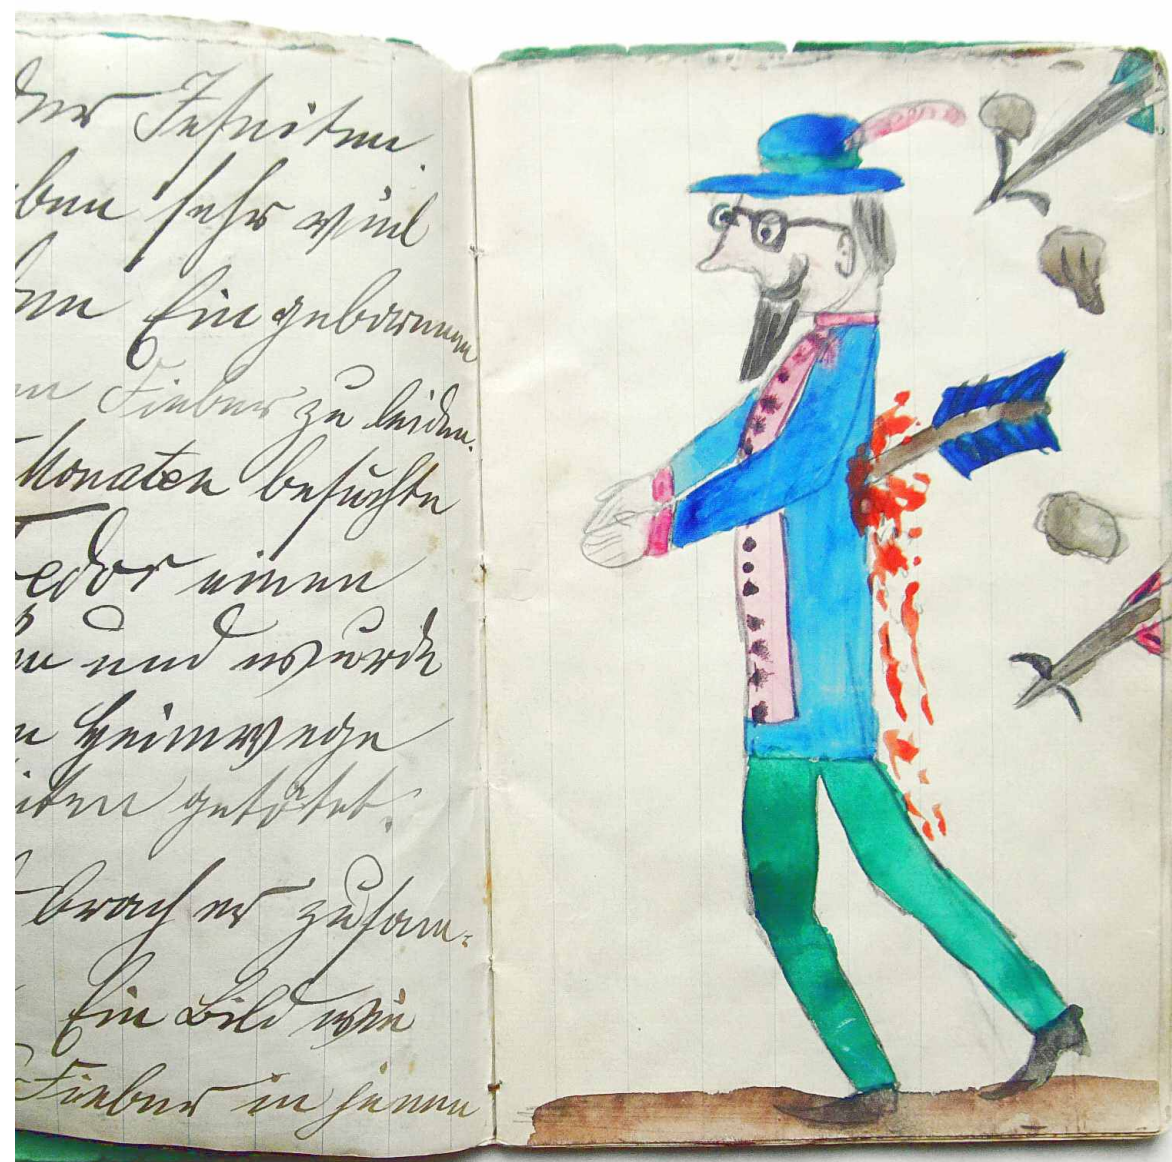 der Jesuiten.
ben sehr viel
den Eingeborenen
Fieber zu leiden.
Monaten besuchte
edor einen
und wurde
Heimwege
getötet.
brach er zusam-
Ein Bild wie
Fieber in jenen